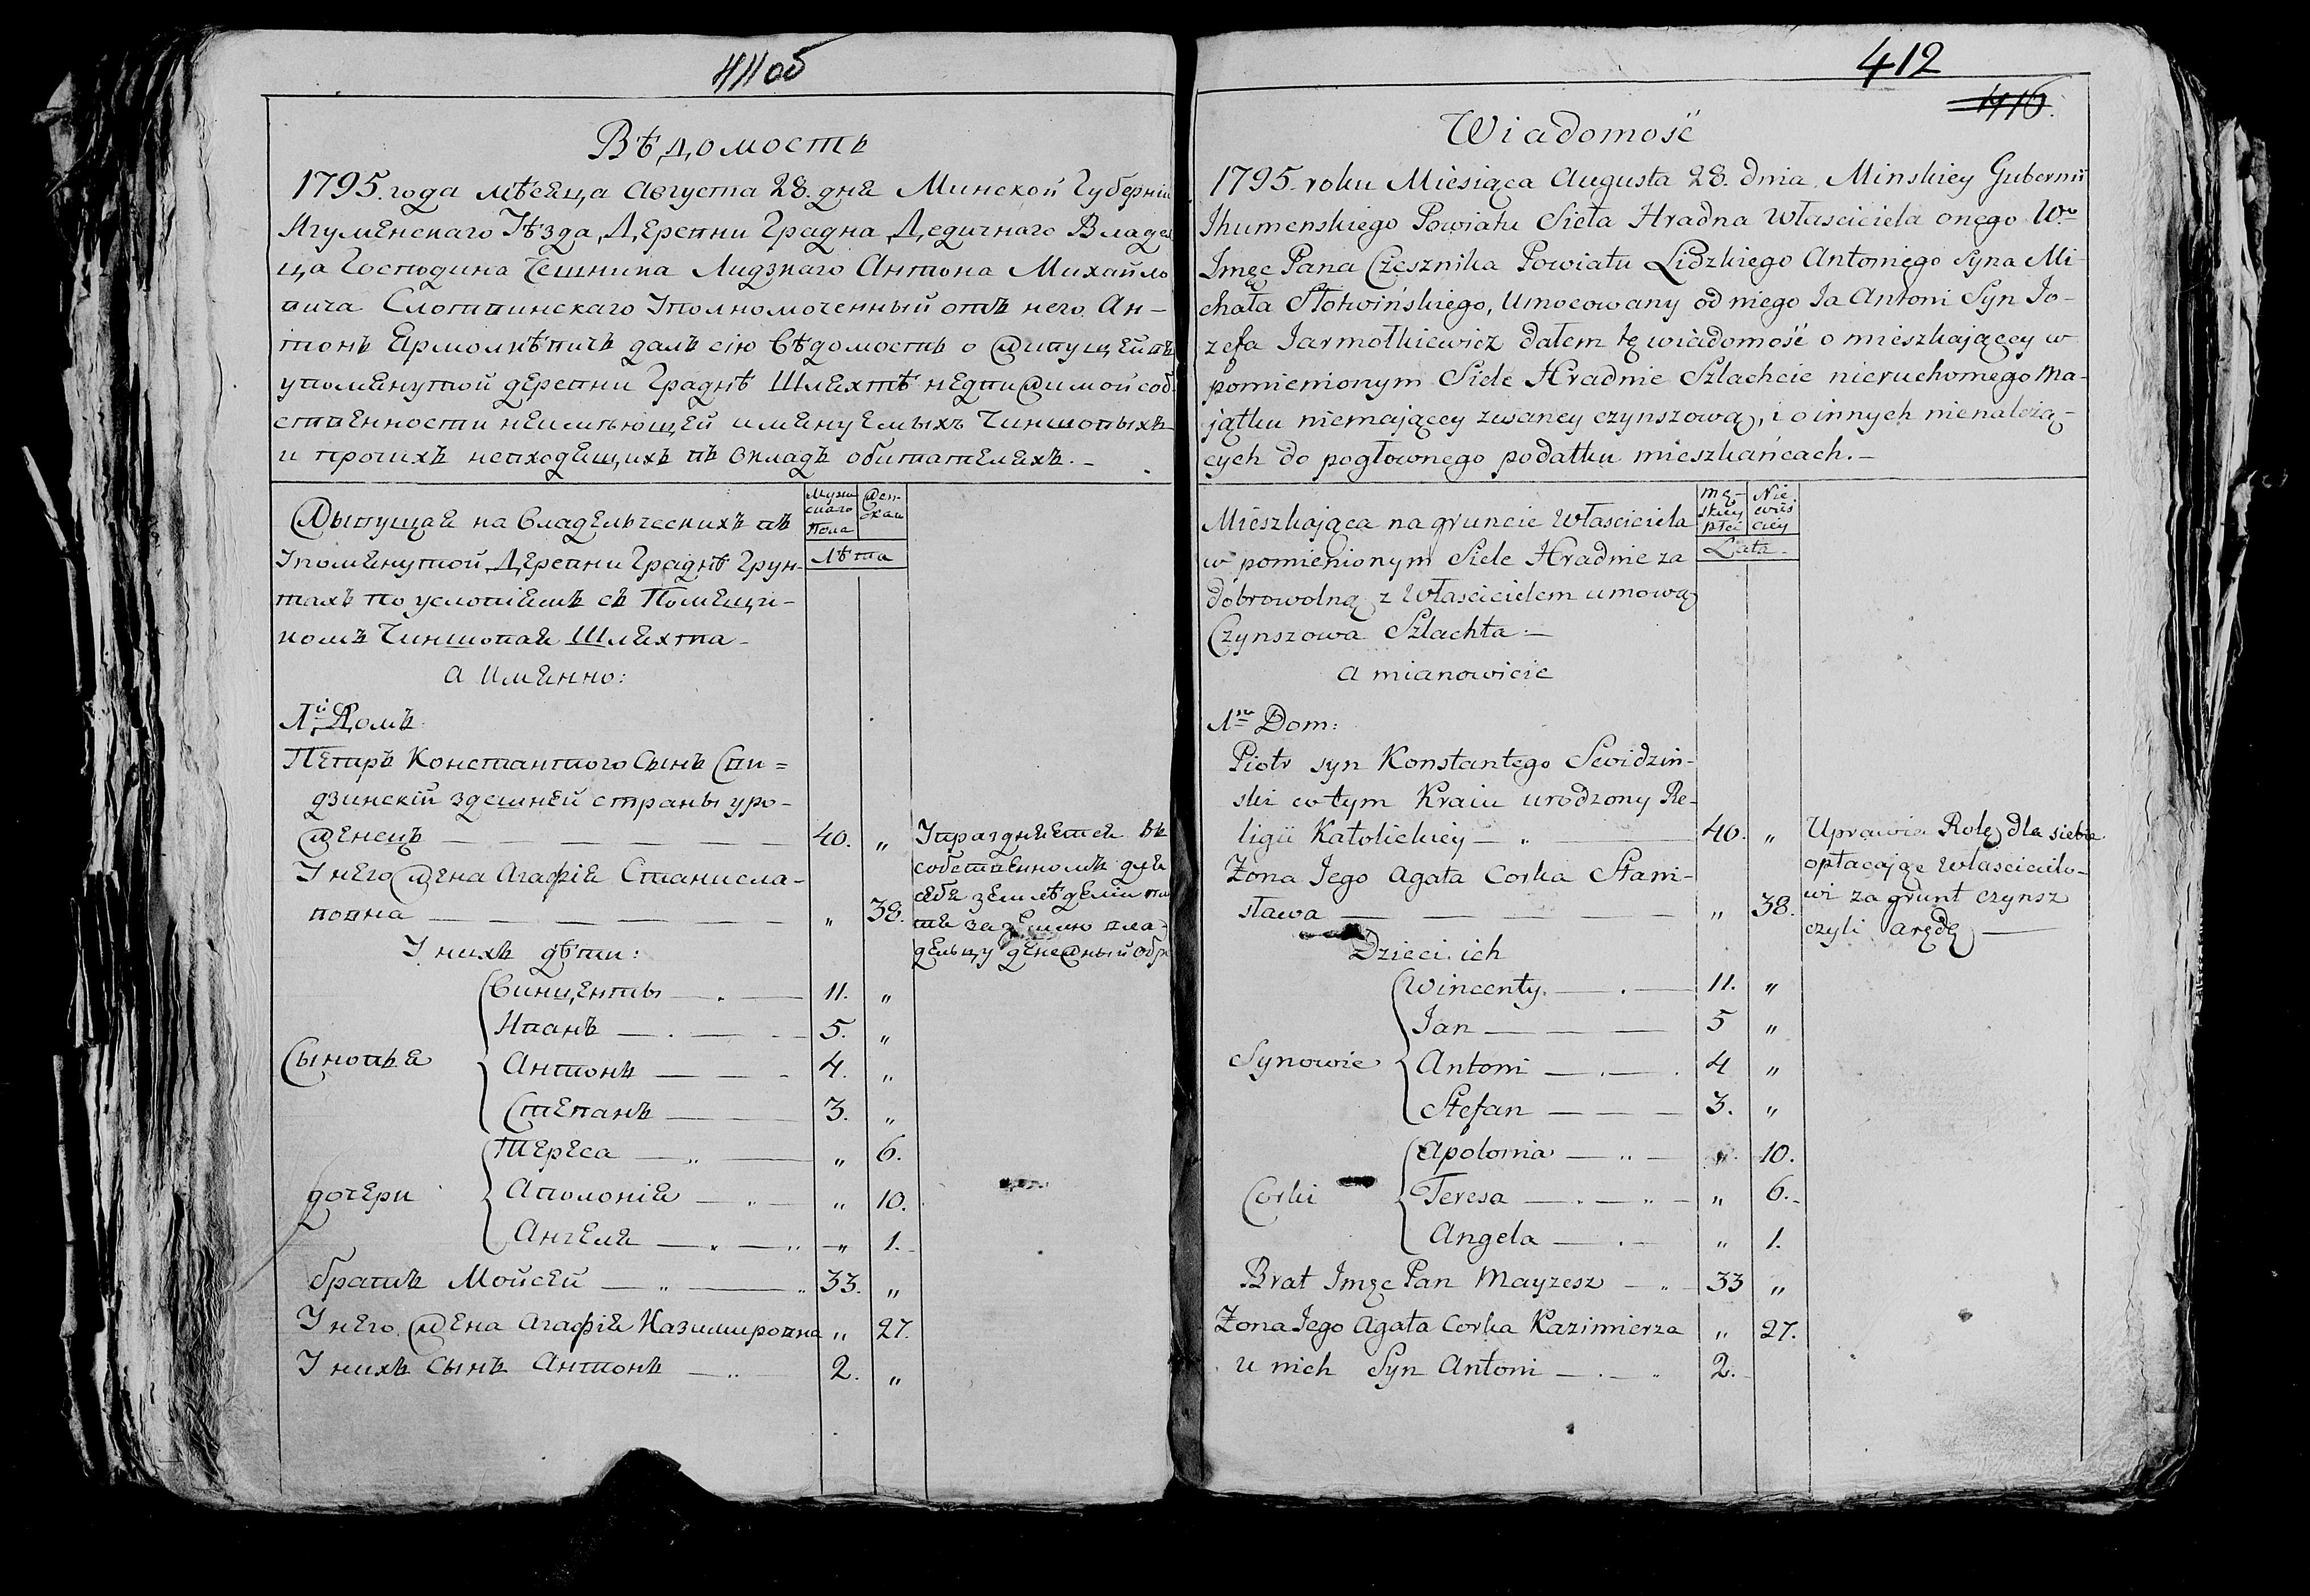 411об
Вѣдомость
1795. года мѣсяца Августа 28. дня Минской Губерніи
Игуменскаго Уѣзда, Деревни Градна, Дедичнаго Владел
ца Господина Чешника Лидзкаго Антона Михайло
вича Слотвинскаго Уполномоченный отъ него Ан-
тонъ Ярмолкѣвичъ далъ сію вѣдомость о живущей въ
упомянутой деревни Граднѣ Шляхтѣ недвижимой соб
ственности неимѣющей именуемыхъ Чиншовыхъ
и прочихъ невходящихъ въ окладъ обитателяхъ.-
Живущая на Владельческихъ въ
Упомянутой Деревни Граднѣ Грун-
тахъ по условіямъ съ Помещи-
комъ Чиншовая Шляхта-
Мужескаго пола
Жен-
ска
Лѣта
а именно:
1й Домъ.
Петръ Константного Сынъ Сви=
дзинскій здешней страны уро-
женецъ 40. „
У него Жена Агафія Станисла-
вовна „ 38.
Упражняется въ
собственномъ для
себя земледеліи
за землю вла-
дельцу денежный
У нихъ дѣти:
Сыновья
Винценты 11. „
Иванъ 5. „
Антонъ 4. „
Степанъ 3. „
дочери
Тереса „ 6.
Аполонія „ 10.
Ангеля „ 1.
братъ Мойсей 33. „
У него Жена Агафія Казимировна „ 27.
У нихъ Сынъ Антонъ 2. „
412
416.
Wiadomość
1795. roku Miesiąca Augusta 28. dnia. Minskiey Gubernii
Ihumenskiego Powiatu Sieła Hradna Własciciela onego Wo
Imęc Pana Czesznika Powiatu Lidzkiego Antoniego Syna Mi-
chała Słotwińskiego, Umocowany od niego Ja Antoni Syn Jo-
zefa Jarmołkiewicz dałem tę wiadomość o mieszkaiącey w
pomienionym Siele Hradnie Szlachcie nieruchomego ma-
jątku niemającey zwaney czynszową, i o innych nienależą-
cych do pogłownego podatku mieszkańcach.-
Mieszkaiąca na gruncie Własciciela
w pomienionym Siele Hradnie za
dobrowolną z Własciecielem umową
Czynszowa Szlachta:-
mę-
skiey
płci
Nie
wieś
ciey
Lata-
a mianowicie
1szy Dom:
Piotr syn Konstantego Swidzin-
ski w tym Kraiu urodzony Re-
ligii Katolickiey 40. „
Zona Jego Agata Corka Stani-
sława „ 38.
Uprawia Rolę dla siebie
opłacaiąc Właścicielo-
wi za grunt czynsz
czyli arędę
Dzieci ich
Synowie
Wincenty. 11. „
Jan 5 „
Antoni 4 „
Stefan 3. „
Corki
Apolonia „ 10.
Teresa „ 6.-
Angela „ 1.
Brat Imęc Pan Mayzesz 33 „
Zona Jego Agata Corka Kazimierza „ 27.
u nich Syn Antoni 2.